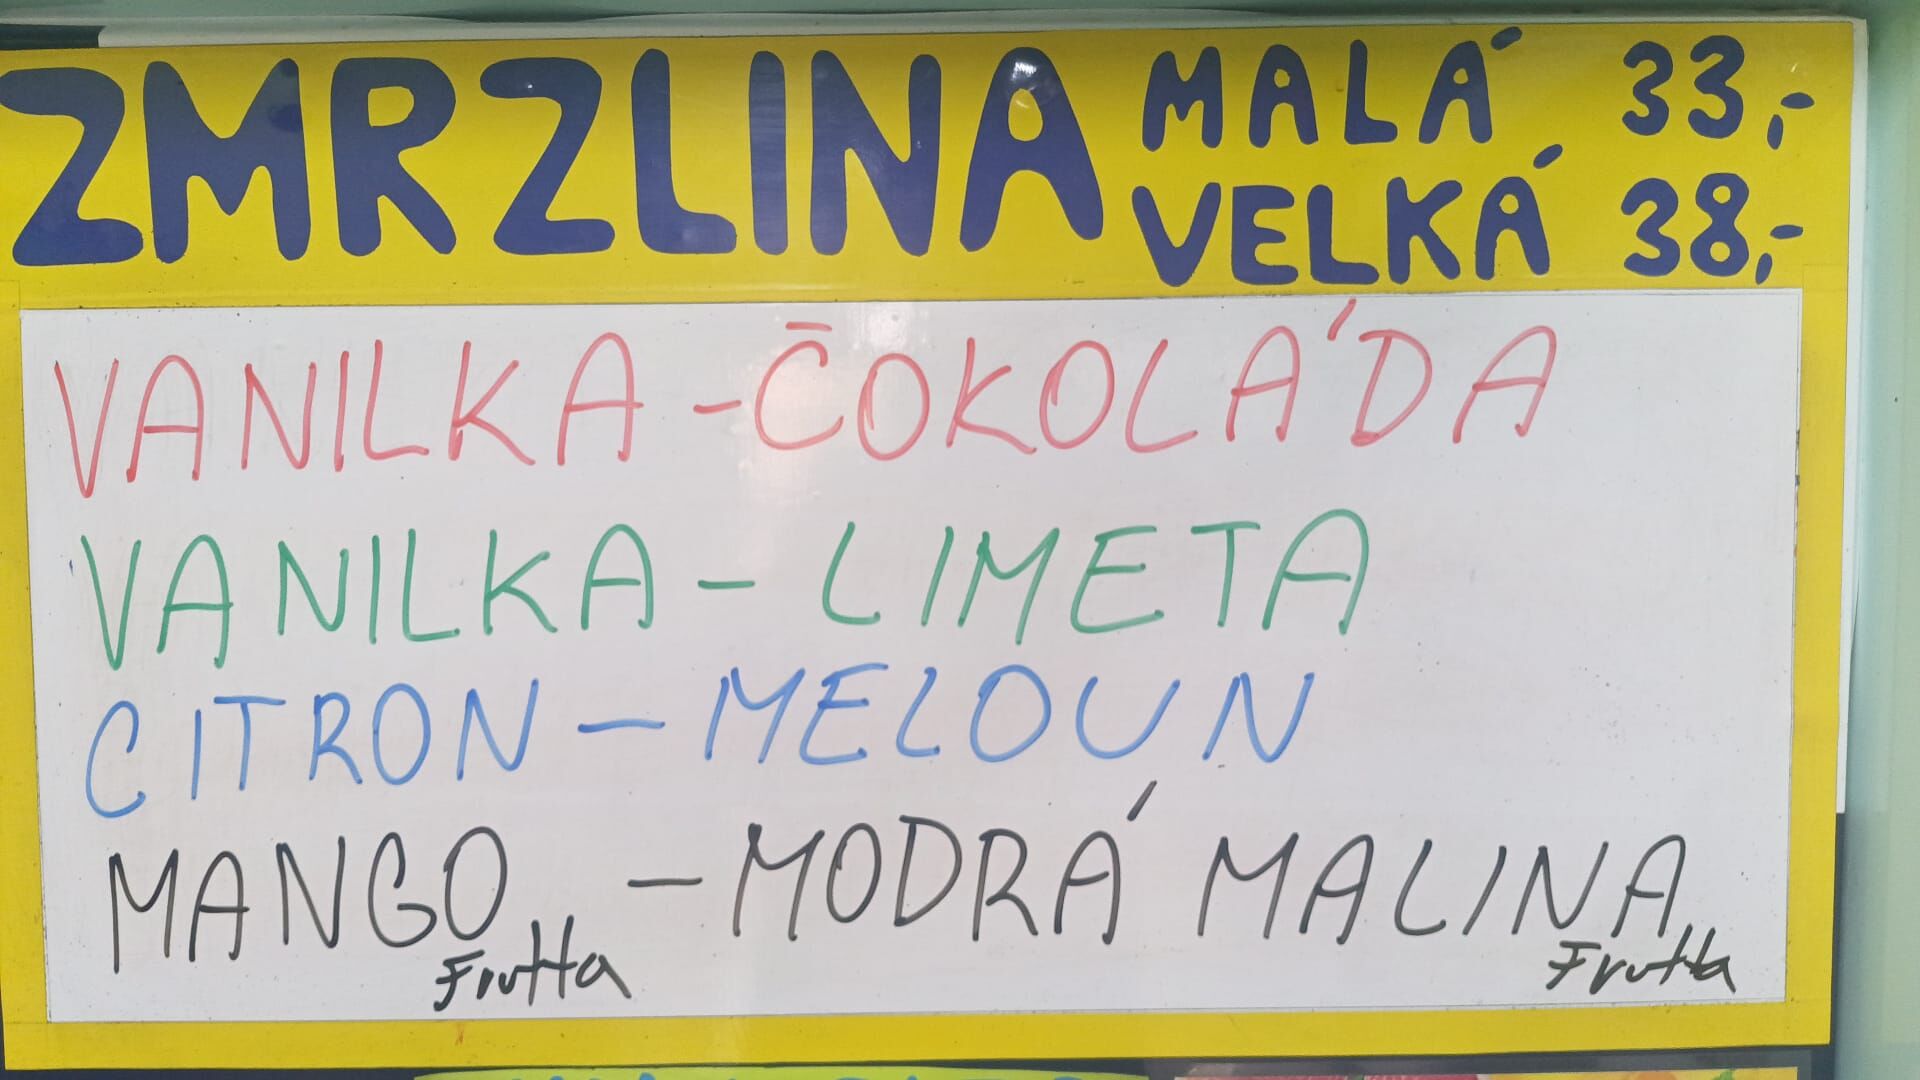 ZMRZLINA MALÁ 33,-
VELKÁ 38,-
VANILKA - ČOKOLÁDA
VANILKA - LIMETA
CITRON - MELOUN
MANGO - MODRÁ MALINA
Frutta Frutta